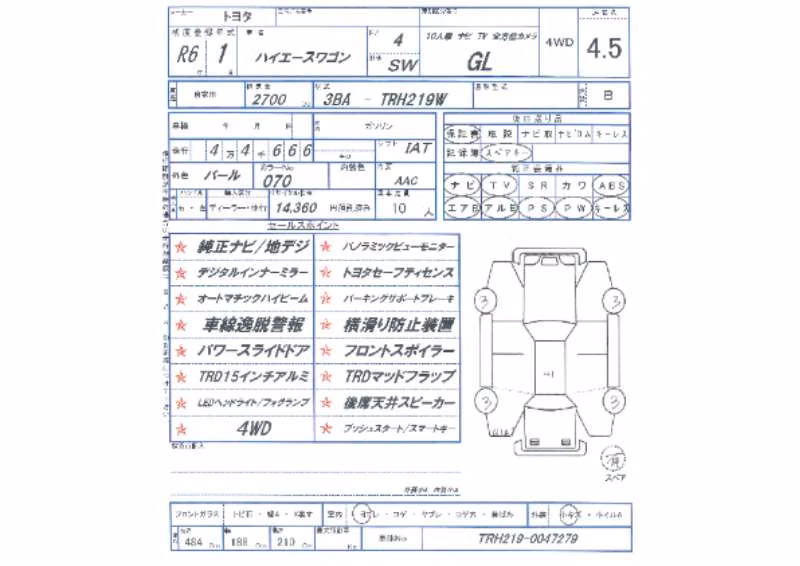 トヨタ
R6 1 ハイエースワゴン 4 SW 10人乗 ナビ TV 全方位カメラ GL 4WD 4.5
自家用 2700 3BA - TRH219W B
車検 年 月 日 ガソリン 後日送り品
保証書 取説 ナビ取 ナビロム キーレス
走行 4 万 4 千 6 6 6 シフト IAT 記録簿 スペアキー
外色 パール カラーNo 070 内装色 AAC
ナビ TV SR カワ ABS
ディーラー・並行 14,360 円預託済み 10 人 エアB アルミ PS PW キーレス
セールスポイント
純正ナビ/地デジ パノラミックビューモニター
デジタルインナーミラー トヨタセーフティセンス
オートマチックハイビーム パーキングサポートブレーキ
車線逸脱警報 横滑り防止装置
パワースライドドア フロントスポイラー
TRD15インチアルミ TRDマッドフラップ
LEDヘッドライト/フォグランプ 後席天井スピーカー
4WD プッシュスタート/スマートキー
3 3
3 3
スペア
フロントガラス 室内 ヨゴレ ・ コゲ ・ ヤブレ ・ コゲ穴 ・ 外装 小キズ
484 Cm 188 Cm 210 Cm 車体No TRH219-0047279